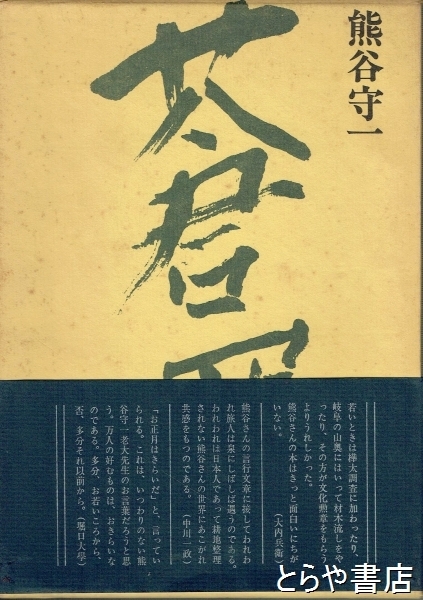 熊谷守一
蒼
若いときは樺太調査に加わったり、
岐阜の山奥にはいって材木流しをや
ったり、その方が文化勲章をもらう
よりうれしかった。
熊谷さんの本はきっと面白いにちが
いない。
（大内兵衛）
熊谷さんの言行文章に接してわれわ
れ旅人は泉にしばしば遇うのである。
われわれは日本人であって耕地整理
されない熊谷さんの世界にあこがれ
共感をもつのである。（中川一政）
「お正月はきらいだ」と、言ってい
られる。これは、いつわりのない熊
谷守一老大先生のお言葉だろうと思
う。万人の好むものは、おきらいな
のである。多分、お若いころから、
否、多分それ以前から。（堀口大學）
とらや書店